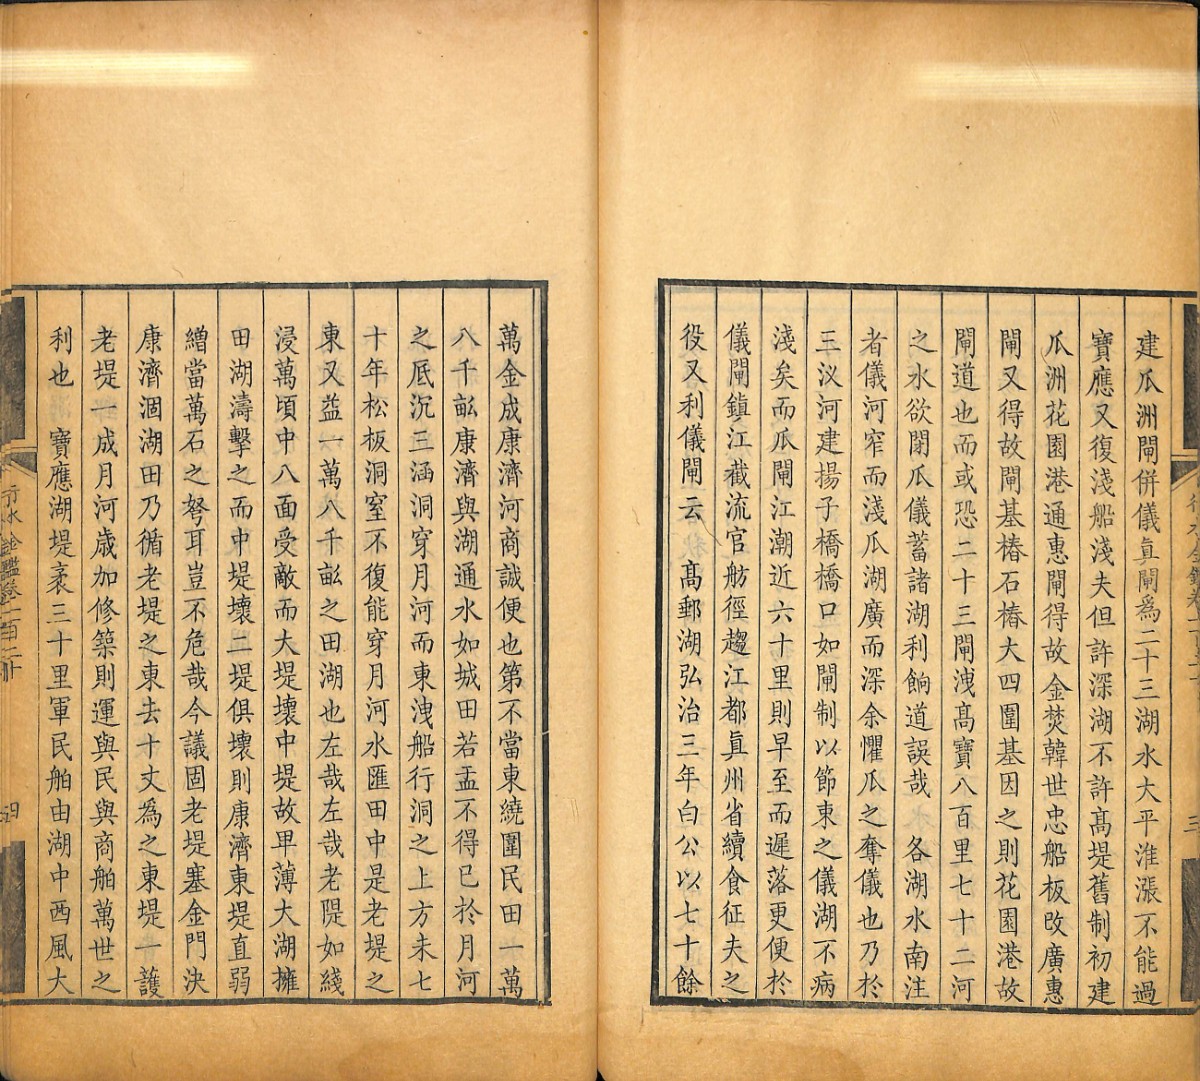 建瓜洲閘併儀眞閘爲二十三湖水大平淮漲不能過
寶應又復淺船淺夫但許深湖不許髙堤舊制初建
瓜洲花園港通惠閘得故金焚韓世忠船板改廣惠
閘又得故閘基樁石樁大四圍基因之則花園港故
閘道也而或恐二十三閘洩髙寶八百里七十二河
之水欲閉瓜儀蓄諸湖利餉道誤哉　各湖水南注
者儀河窄而淺瓜湖廣而深余懼瓜之奪儀也乃於
三汊河建揚子橋橋口如閘制以節東之儀湖不病
淺矣而瓜閘江潮近六十里則早至而遲落更便於
儀閘鎮江截流官舫徑趨江都眞州省續食征夫之
役又利儀閘云　髙郵湖弘治三年白公以七十餘
萬金成康濟河商誠便也第不當東繞圍民田一萬
八千畝康濟與湖通水如城田若盂不得已於月河
之厎沉三涵洞穿月河而東洩船行洞之上方未七
十年松板洞窒不復能穿月河水匯田中是老堤之
東又益一萬八千畝之田湖也左哉左哉老隄如綫
浸萬頃中八面受敵而大堤壞中堤故卑薄大湖擁
田湖濤擊之而中堤壞二堤俱壞則康濟東堤直弱
繒當萬石之弩耳豈不危哉今議固老堤塞金門決
康濟涸湖田乃循老堤之東去十丈為之東堤一護
老堤一成月河歲加修築則運與民與商舶萬世之
利也　寶應湖堤袤三十里軍民舶由湖中西風大
行水金鑑卷一百二十　四